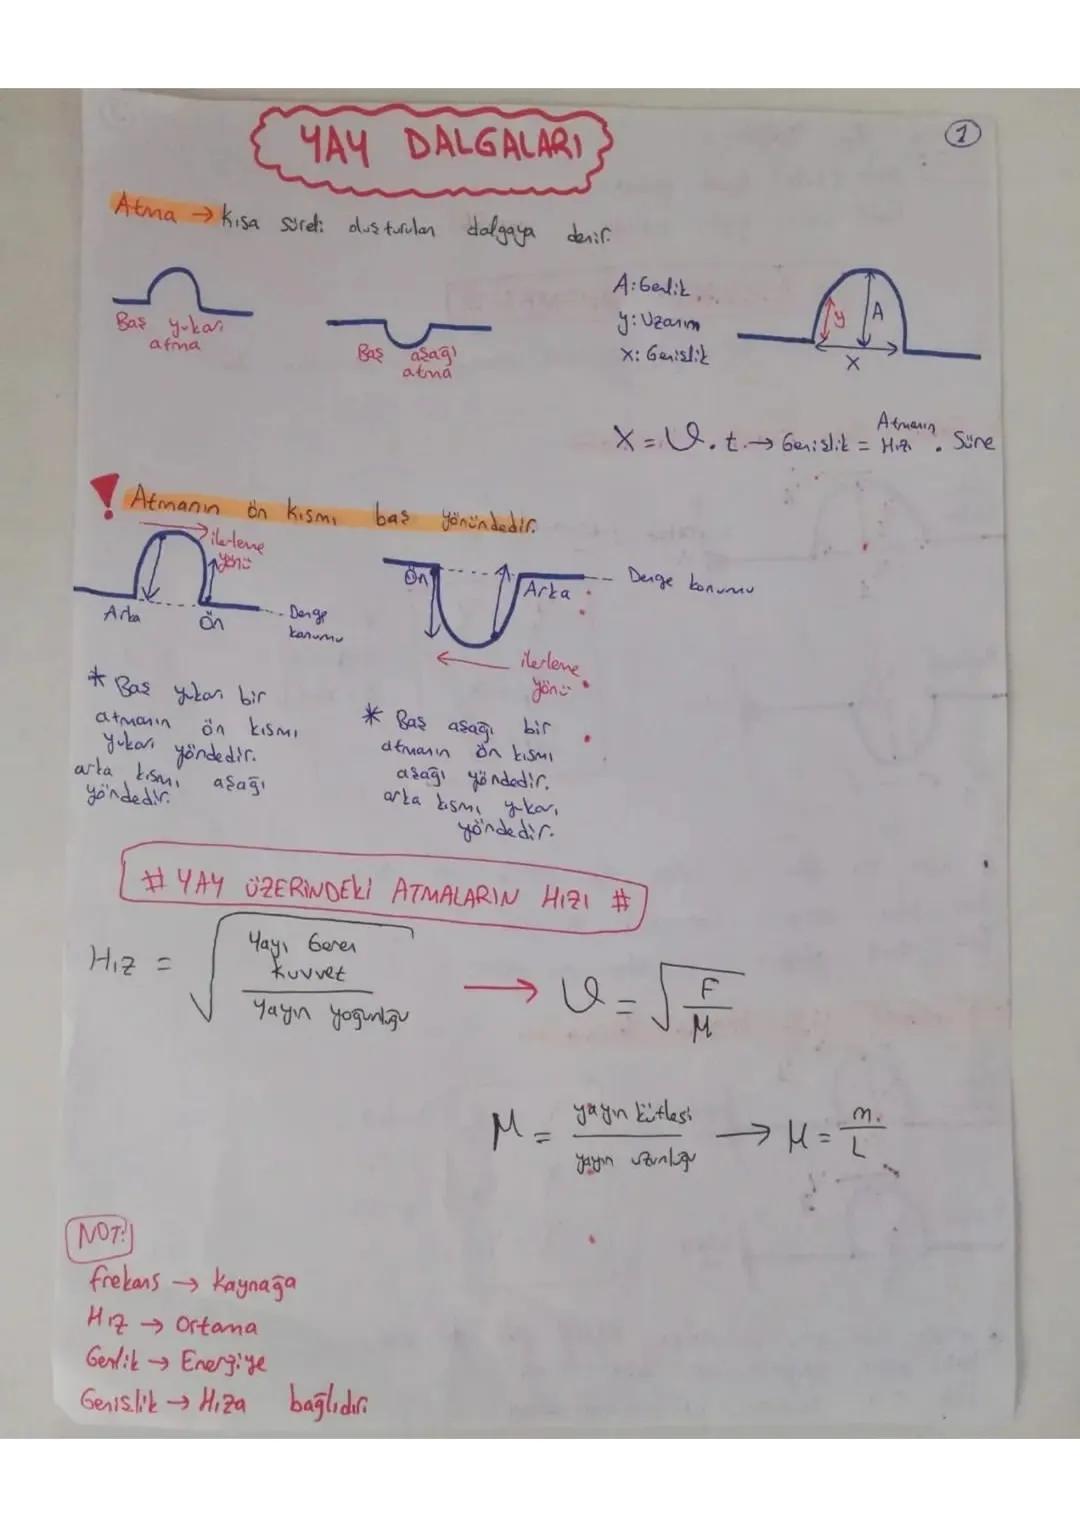 YAY DALGALARI
1
Atma → Kısa süreli oluşturulan dalgaya denir.
Baş yukarı
atma
Baş aşağı
atma
A: Genlik
y: Uzanım
X: Genişlik
y
A
X
X = V . t. → Genişlik = Atmanın Hızı . Süre
! Atmanın ön kısmı baş yönündedir.
ilerleme
yönü
Arka
Ön
Denge
konumu
Ön
Arka
Denge konumu
ilerleme
yönü
* Baş yukarı bir
atmanın ön kısmı
yukarı yöndedir.
arka kısmı aşağı
yöndedir.
* Baş aşağı bir
atmanın ön kısmı
aşağı yöndedir.
arka kısmı yukarı
yöndedir.
# YAY ÜZERİNDEKİ ATMALARIN HIZI #
Hız = √ Yayı Geren
Kuvvet
Yayın yoğunluğu
→ V = √ F
M
M = yayın kütlesi
yayın uzunluğu
→ M = m.
L
NOT!
frekans → Kaynağa
Hız → Ortama
Genlik → Enerjiye
Genişlik → Hıza bağlıdır.